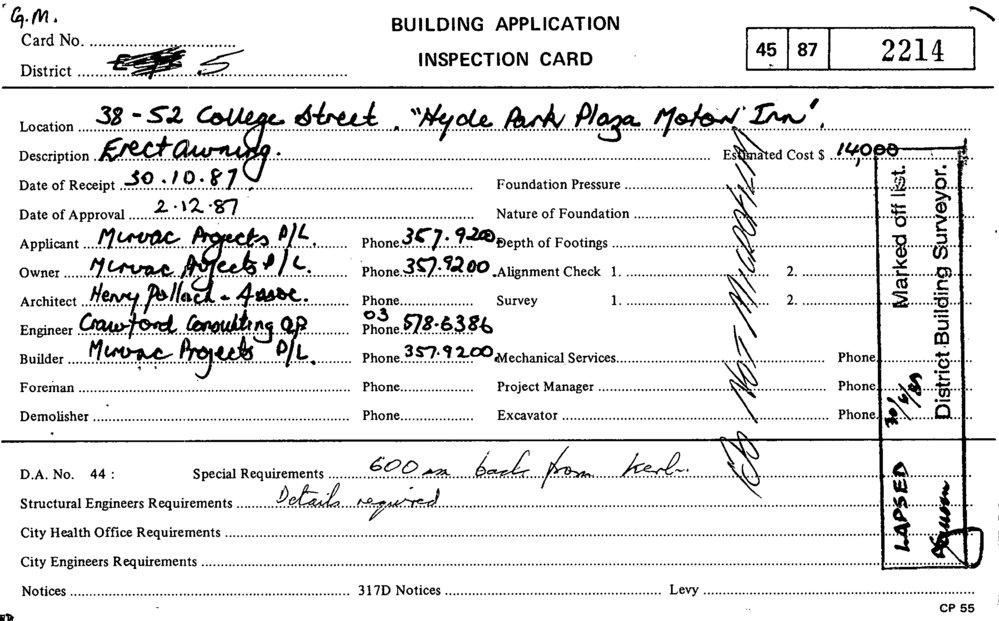 G.M.
BUILDING APPLICATION
INSPECTION CARD
Card No.
District 5
45 87 2214
Location 38-52 College Street. "Hyde Park Plaza Motor Inn".
Description Erect awning. Estimated Cost $ 14,000
Date of Receipt 30.10.87 Foundation Pressure
Date of Approval 2.12.87 Nature of Foundation
Applicant Mirvac Projects P/L. Phone 357.9200 Depth of Footings
Owner Mirvac Projects P/L. Phone 357.9200 Alignment Check 1. 2.
Architect Henry Pollack & Assoc. Phone Survey 1. 2.
Engineer Crawford Consulting GP Phone 03 578-6386
Builder Mirvac Projects P/L. Phone 357.9200 Mechanical Services Phone
Foreman Phone Project Manager Phone
Demolisher Phone Excavator Phone
NOT MICROFILM
LAPSED 30/6/89 Marked off list.
District Building Surveyor.
D.A. No. 44 : Special Requirements 600 mm back from kerb.
Structural Engineers Requirements Details required
City Health Office Requirements
City Engineers Requirements
Notices 317D Notices Levy
CP 55